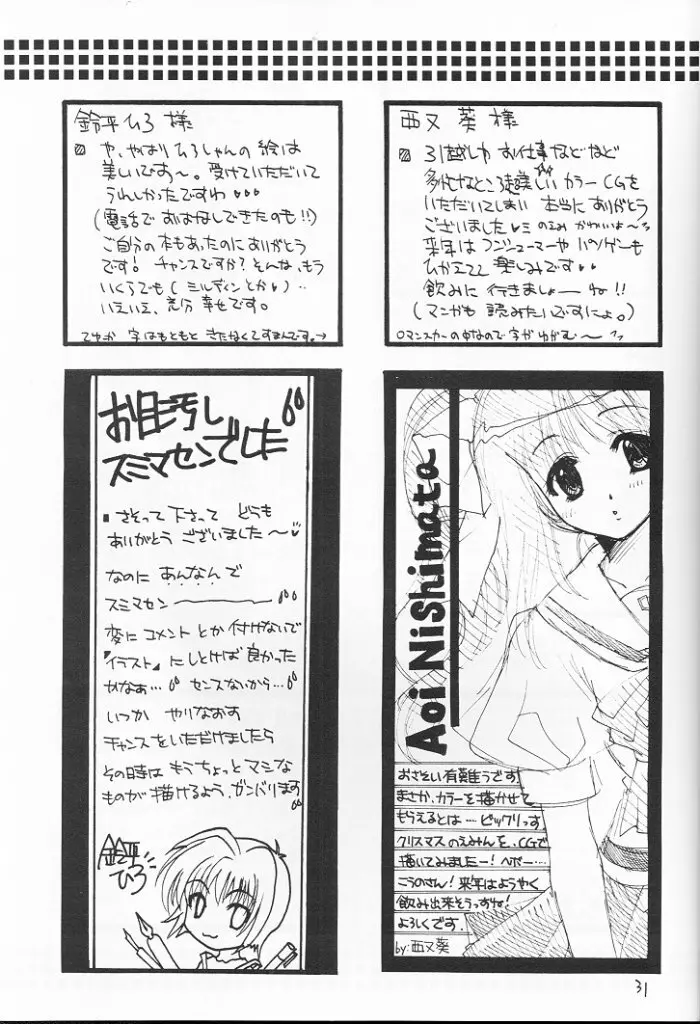 鈴平ひろ様
や、やはりひろしゃんの絵は
美しいです〜。受けていただいて
うれしかったですわ♥♥♥
(電話でおはなしできたのも!!)
ご自分の本もあったのにありがとう
です! チャンスですか?そんな、もう
いくらでも(ミルディンとか♥)‥
いえいえ、充分 幸せです。
てゆか 字はもともと きたなくてすまんです。→
西又 葵 様
お仕事などなど
カラーCGを
いただいてしまい 本当にありがとう
ございました♥ミ のえみ かわいいよ〜
来年はコンシューマーや パソゲーも
ひかえてて 楽しみです♥♥
飲みに 行きましょーね!!
(マンガも 読みたいですにょ。)
ロマンスカーの中なので字がゆがむ〜
お目汚し
スミマセンでした
さそって下さって どうも
ありがとう ございました〜♥
なのに あんなんで
スミマセン――――
変に コメント とか 付けないで
『イラスト』 にしとけば 良かった
かなぁ… センスないから…
いつか やりなおす
チャンスをいただけましたら
その時は もうちょっと マシな
ものが 描けるよう、ガンバります
鈴平
ひろ
Aoi Nishimata
おさそい有難うです
まさか、カラーを描かせて
もらえるとは…ビックリっす
クリスマスのえみんを、CGで
描いてみましたー! ヘボー…
こうのさん! 来年はようやく
飲み出来そうっすね!
よろしくです.
by:西又葵
31